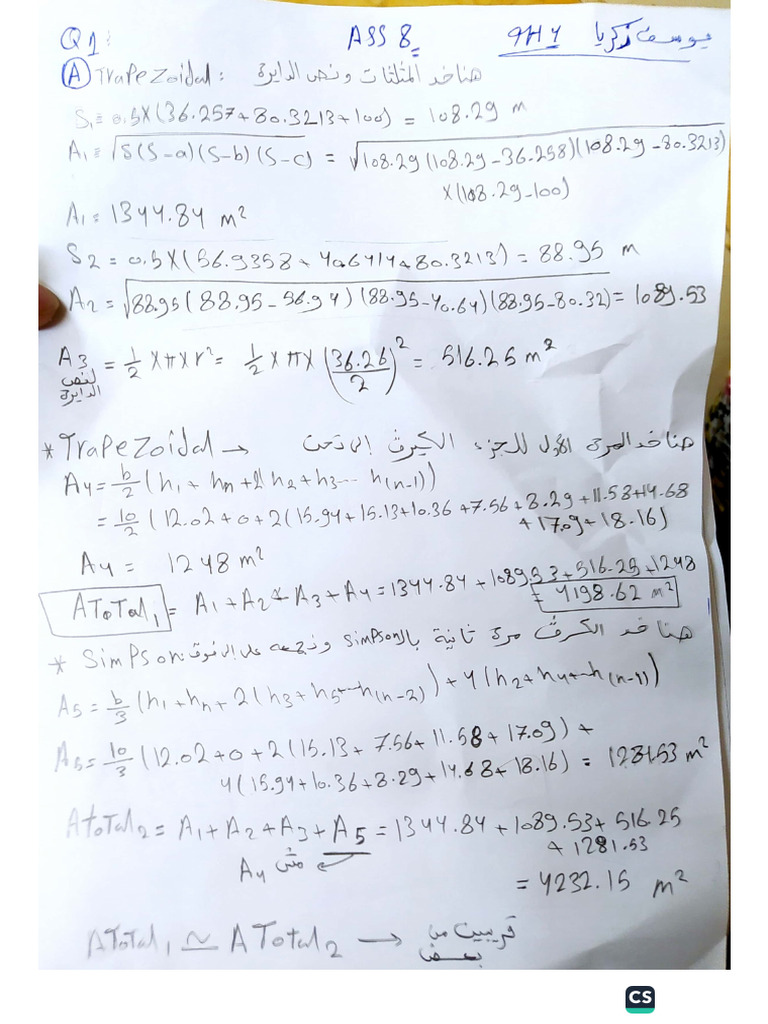 Q1: ASS 8 9H4 يوسف زكريا
(A) Trapezoidal: هناخد المثلثات ونص الدايرة
S1 = 0.5X(36.257+80.3213+100) = 108.29 m
A1 = √S(S-a)(S-b)(S-c) = √108.29(108.29-36.258)(108.29-80.3213)
X(108.29-100)
A1 = 1344.84 m²
S2 = 0.5X(56.9358+40.6414+80.3213) = 88.95 m
A2 = √88.95(88.95-56.94)(88.95-40.64)(88.95-80.32) = 1089.53
A3 = 1/2 XπXr² = 1/2 XπX(36.26/2)² = 516.25 m²
لنص
الدايرة
* Trapezoidal → هناخد المرة الأولى للجزء الكيرف إلى تحت
A4 = b/2 (h1+hn+2(h2+h3...h(n-1))
= 10/2 (12.02+0+2(15.94+15.13+10.36+7.56+8.29+11.58+14.68
+17.09+18.16)
A4 = 1248 m²
ATotal1 = A1+A2+A3+A4 = 1344.84+1089.53+516.25+1248
= 4198.62 m²
* Simpson: هناخد الكرف مرة ثانية بال simpson ونجمعه على إلى فوق
A5 = b/3 (h1+hn+2(h3+h5--h(n-2))+4(h2+h4+--h(n-1))
A5 = 10/3 (12.02+0+2(15.13+7.56+11.58+17.09)+
4(15.94+10.36+8.29+14.68+18.16) = 1281.53 m²
Atotal2 = A1+A2+A3+A5 = 1344.84+1089.53+516.25
+1281.53
مش A4
= 4232.15 m²
ATotal1 ≃ ATotal2 → قريبين من
بعض
CS